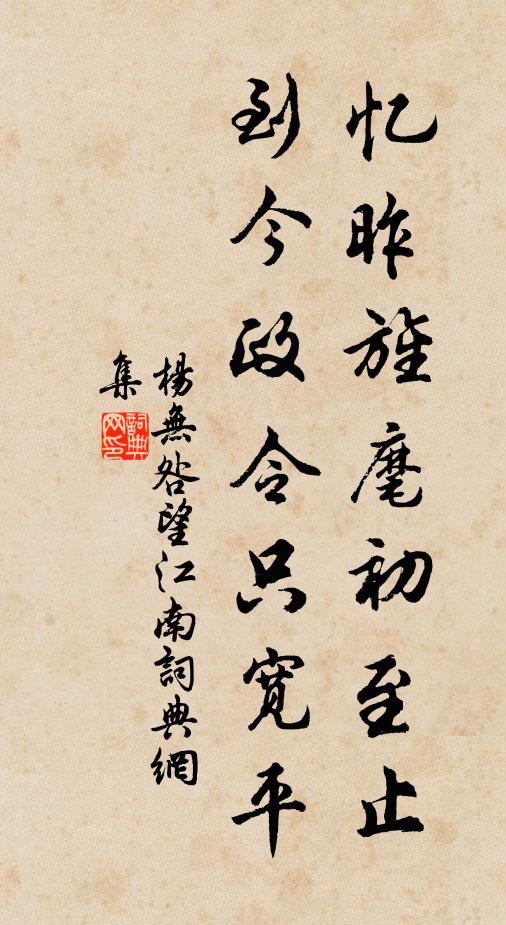 忆昨旌麾初至止
到今政令只宽平
楊無咎望江南詞典網
集
詞典网印